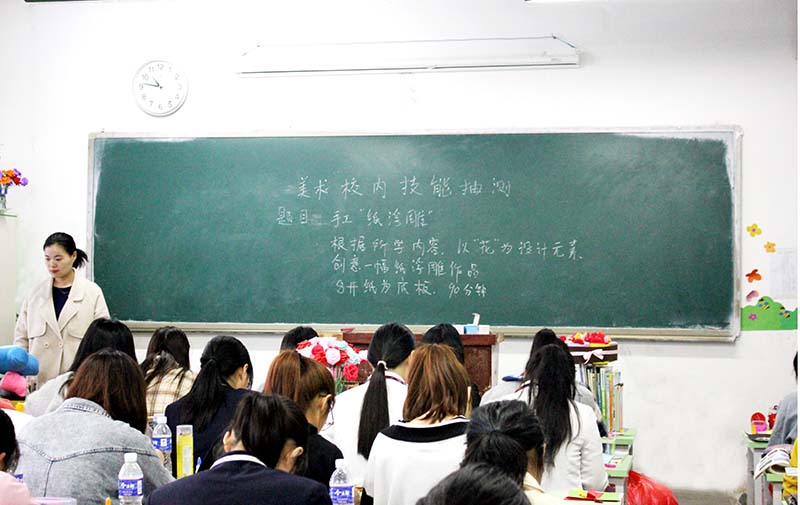 美术校内技能抽测
题目：手工"纸浮雕"
根据所学内容，以"花"为设计元素，
创意一幅纸浮雕作品
8开纸为底板，90分钟